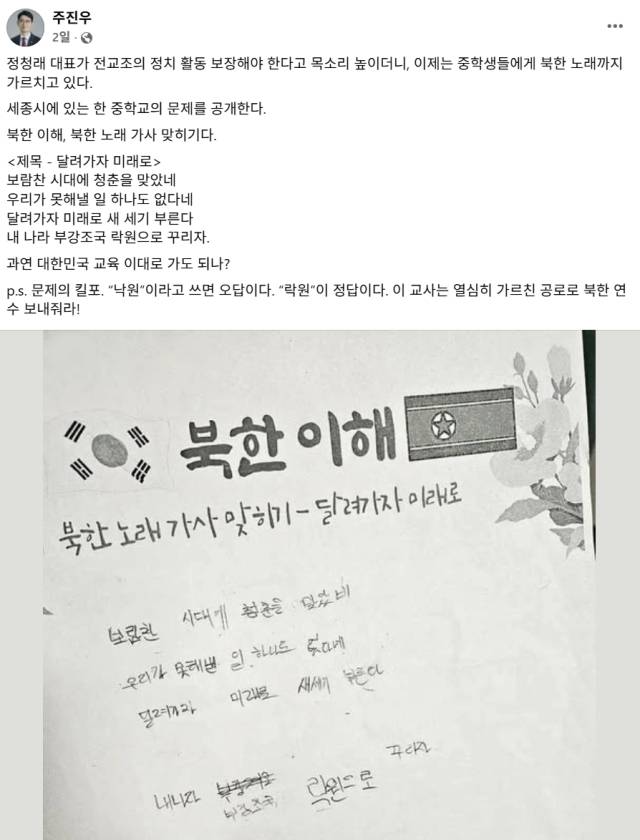 주진우
2일 ·
정청래 대표가 전교조의 정치 활동 보장해야 한다고 목소리 높이더니, 이제는 중학생들에게 북한 노래까지
가르치고 있다.
세종시에 있는 한 중학교의 문제를 공개한다.
북한 이해, 북한 노래 가사 맞히기다.
<제목 - 달려가자 미래로>
보람찬 시대에 청춘을 맞았네
우리가 못해낼 일 하나도 없다네
달려가자 미래로 새 세기 부른다
내 나라 부강조국 락원으로 꾸리자.
과연 대한민국 교육 이대로 가도 되나?
p.s. 문제의 킬포. “낙원”이라고 쓰면 오답이다. “락원”이 정답이다. 이 교사는 열심히 가르친 공로로 북한 연
수 보내줘라!
북한 이해
북한 노래 가사 맞히기 - 달려가자 미래로
보람찬 시대에 청춘을 맞았네
우리가 못해낼 일 하나도 없다네
달려가자 미래로 새세기 부른다
꾸리자
내나라 락원으로
부강조국